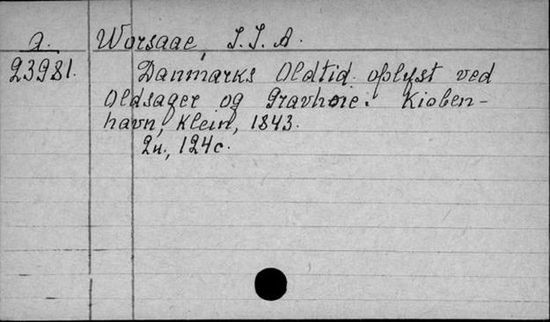 a. Worsaae, J. J. A.
23981. Danmarks Oldtid oplyst ved
Oldsager og Gravhøie. Kiøben-
havn, Klein, 1843.
2н., 124с.